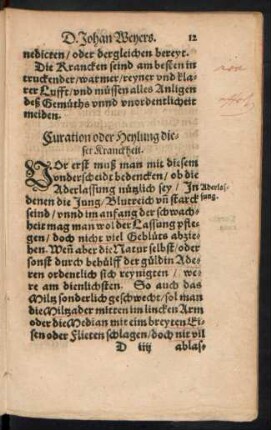 D. Johan Weyers. 12
nedicten / oder dergleichen bereyt.
Die Krancken seind am besten in
truckender / warmer / reyner vnd kla-
rer Lufft / vnd müssen alles Anligen
deß Gemüths vnnd vnordentlicheit
meiden.
Curation oder Heylung die-
ser Kranckheit.
VOr erst muß man mit diesem
vnderscheidt bedencken / ob die
Aderlassung nützlich sey / In
denen die Jung / Blutreich vñ starck
seind / vnnd im anfang der schwach-
heit mag man wol der Lassung pfle-
gen / doch nicht viel Geblüts abzie-
hen. Weñ aber die Natur selbst / oder
sonst durch behülff der güldin Ade-
ren ordentlich sich reynigten / we-
re am dienlichsten. So auch das
Miltz sonderlich geschwecht / sol man
die Miltzader mitten im lincken Arm
oder die Median mit eim breyten Ei-
sen oder Flieten schlagen / doch nit vil
D iiij ablas-
Aderlas-
sung.